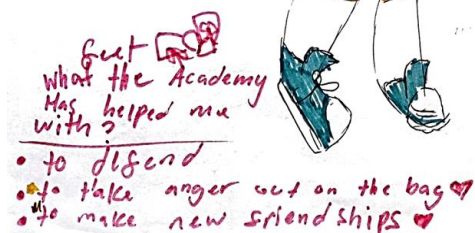 feet
what the Academy
Has helped me
with?
• to difend
• to take anger out on the bag
• to make new friendships